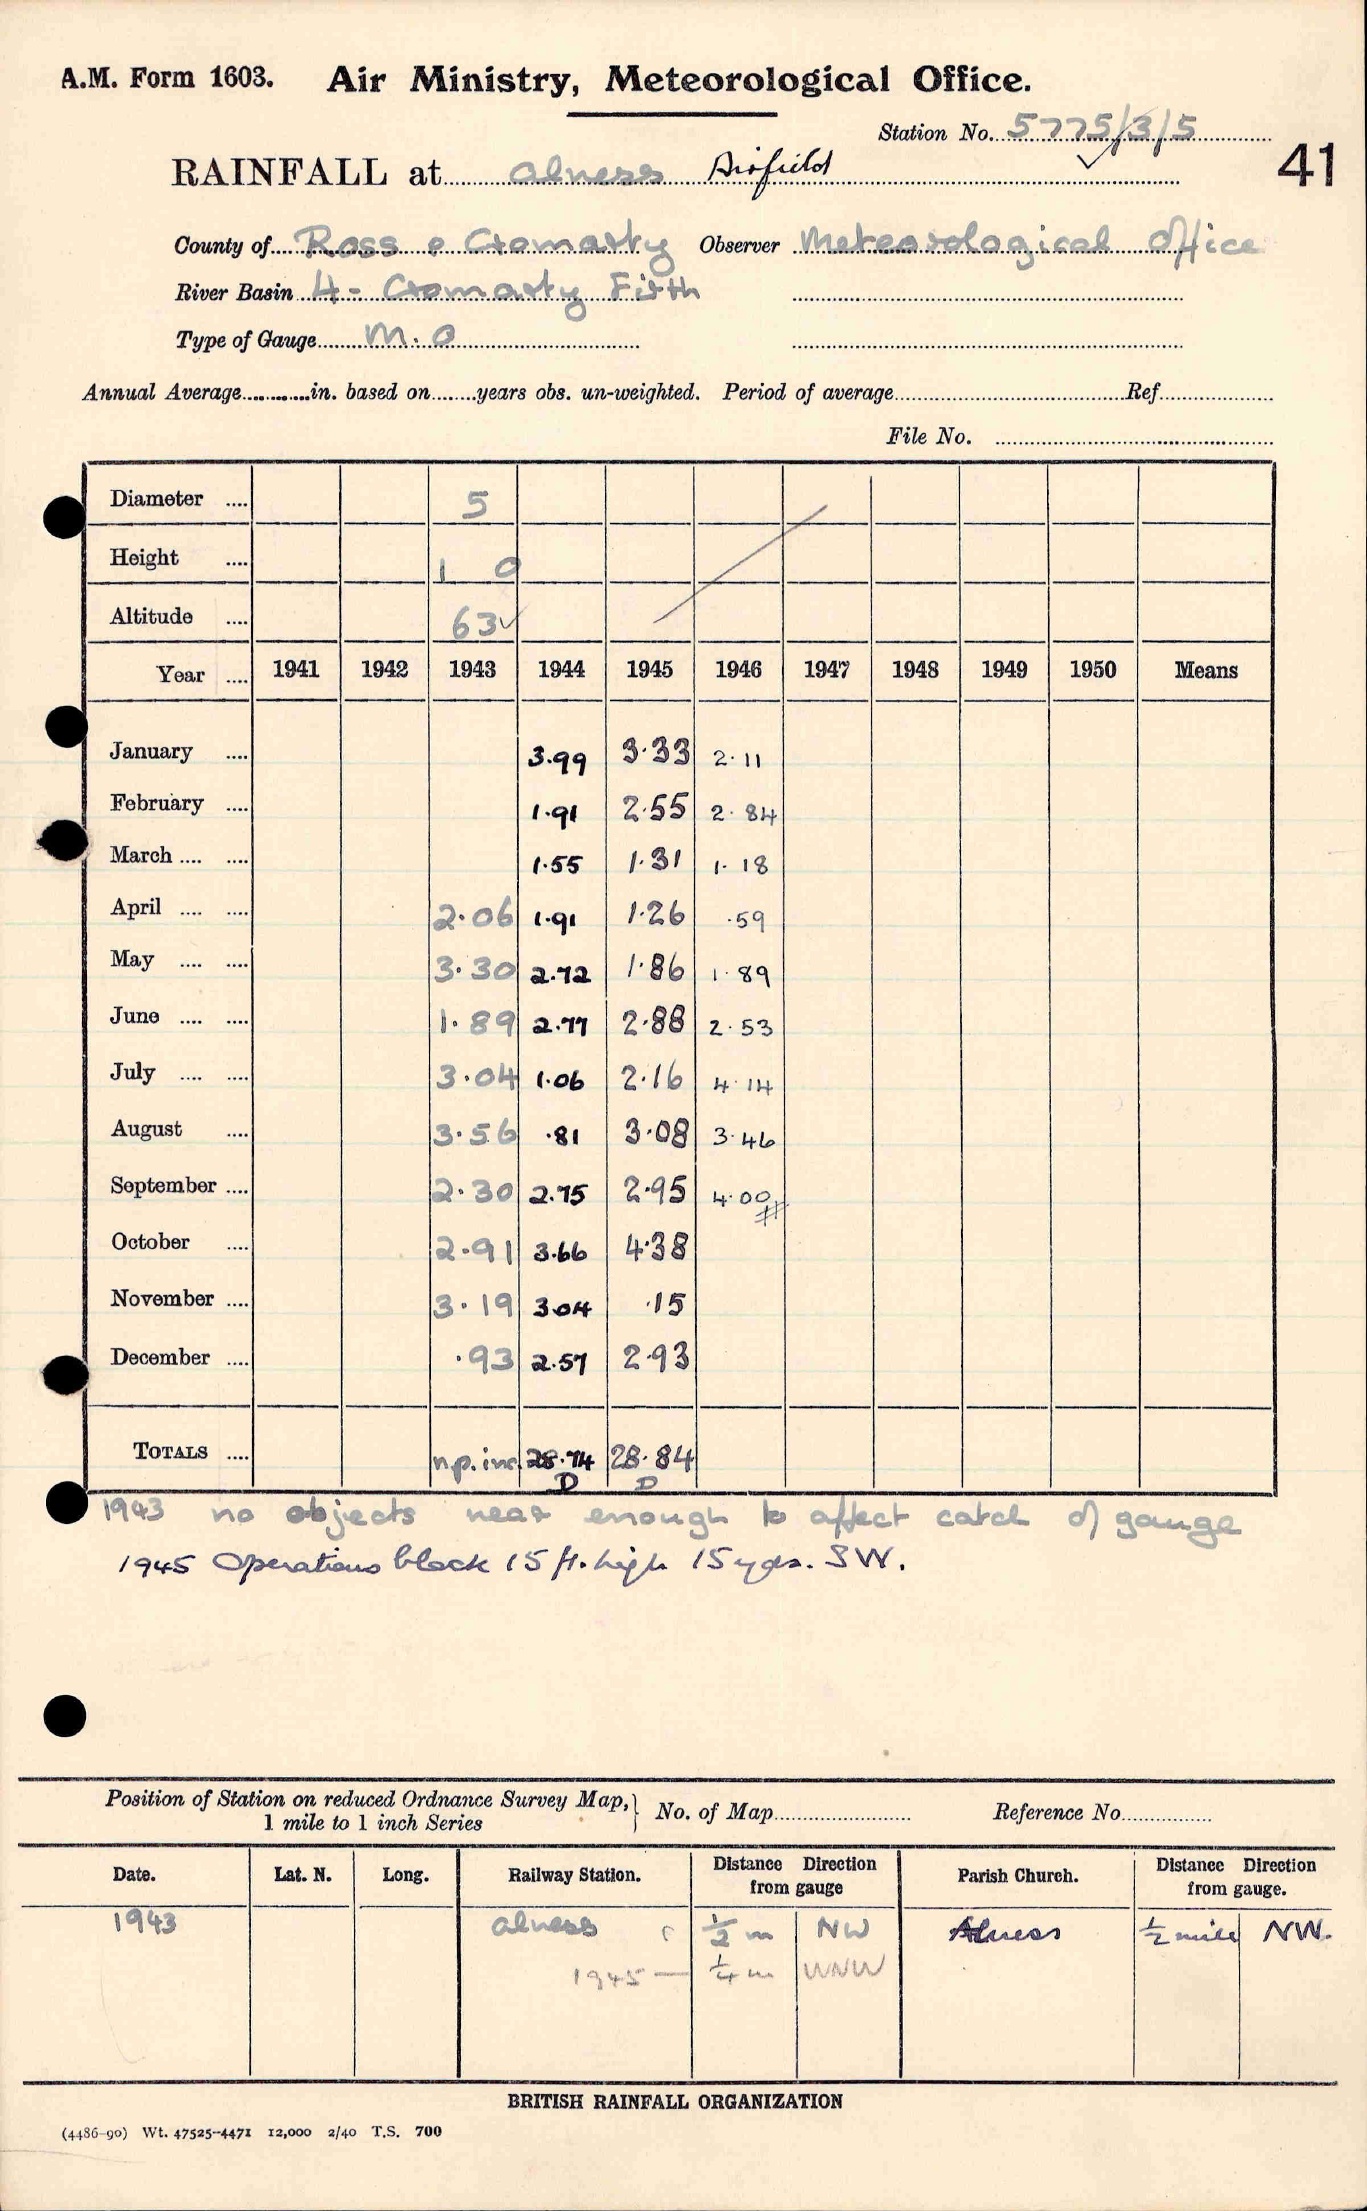 A.M. Form 1603. Air Ministry, Meteorological Office.
Station No. 5775/3/5
41
RAINFALL at alness Airfield
County of Ross & Cromarty Observer Meteorological Office
River Basin 4- Cromarty Firth
Type of Gauge M.O
Annual Average in. based on years obs. un-weighted. Period of average Ref.
File No.
Diameter .... 5
Height .... 1 0
Altitude .... 63 ✓
Year .... 1941 1942 1943 1944 1945 1946 1947 1948 1949 1950 Means
January .... 3.99 3.33 2.11
February .... 1.91 2.55 2.84
March .... .... 1.55 1.31 1.18
April .... .... 2.06 1.91 1.26 .59
May .... .... 3.30 2.72 1.86 1.89
June .... .... 1.89 2.77 2.88 2.53
July .... .... 3.04 1.06 2.16 4.14
August .... 3.56 .81 3.08 3.46
September .... 2.30 2.75 2.95 4.00
October .... 2.91 3.66 4.38
November .... 3.19 3.04 .15
December .... .93 2.57 2.93
TOTALS .... n.p. inc. 28.74 28.84
D D
1943 no objects near enough to affect catch of gauge
1945 Operations block 15 ft. high 15 yds. SW.
Position of Station on reduced Ordnance Survey Map, 1 mile to 1 inch Series No. of Map Reference No.
Date. Lat. N. Long. Railway Station. Distance Direction from gauge Parish Church. Distance Direction from gauge.
1943 alness ½ m NW Alness ½ mile NW.
1945 — ¼ m WNW
BRITISH RAINFALL ORGANIZATION
(4486-90) Wt. 47525-4471 12,000 2/40 T.S. 700